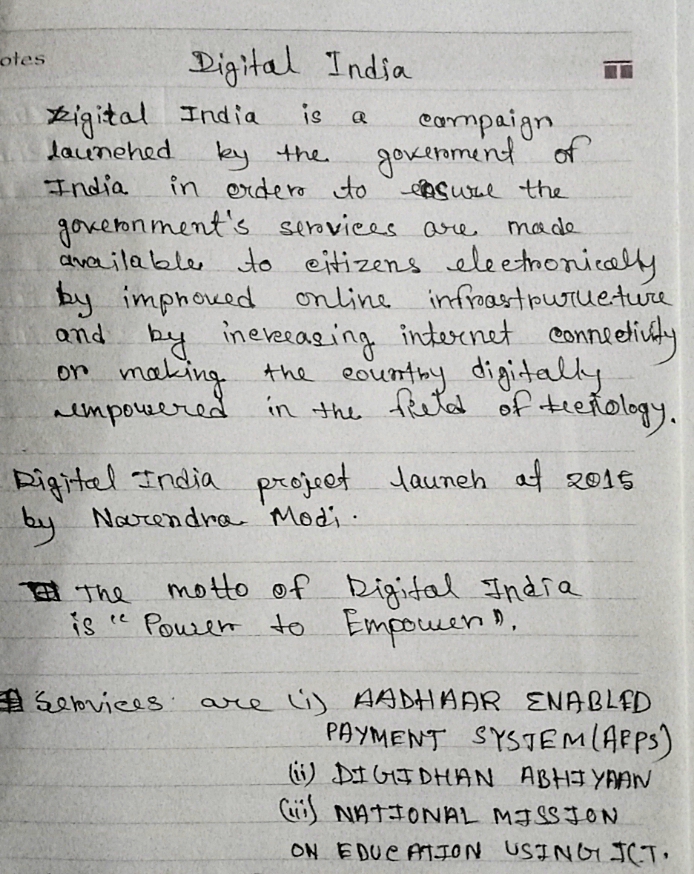 otes
Digital India
Digital India is a campaign
launched by the goverment of
India in order to ensure the
government's services are made
available to citizens electronically
by improved online infrastrurueture
and by increeasing internet connectivity
or making the country digitally
empowered in the field of tecnology.
Digital India project launch at 2015
by Narendra Modi.
The motto of Digital India
is "Power to Empower".
Services are (i) AADHAAR ENABLED
PAYMENT SYSTEM (AEPS)
(ii) DIGIDHAN ABHIYAAN
(iii) NATIONAL MISSION
ON EDUCATION USING ICT.